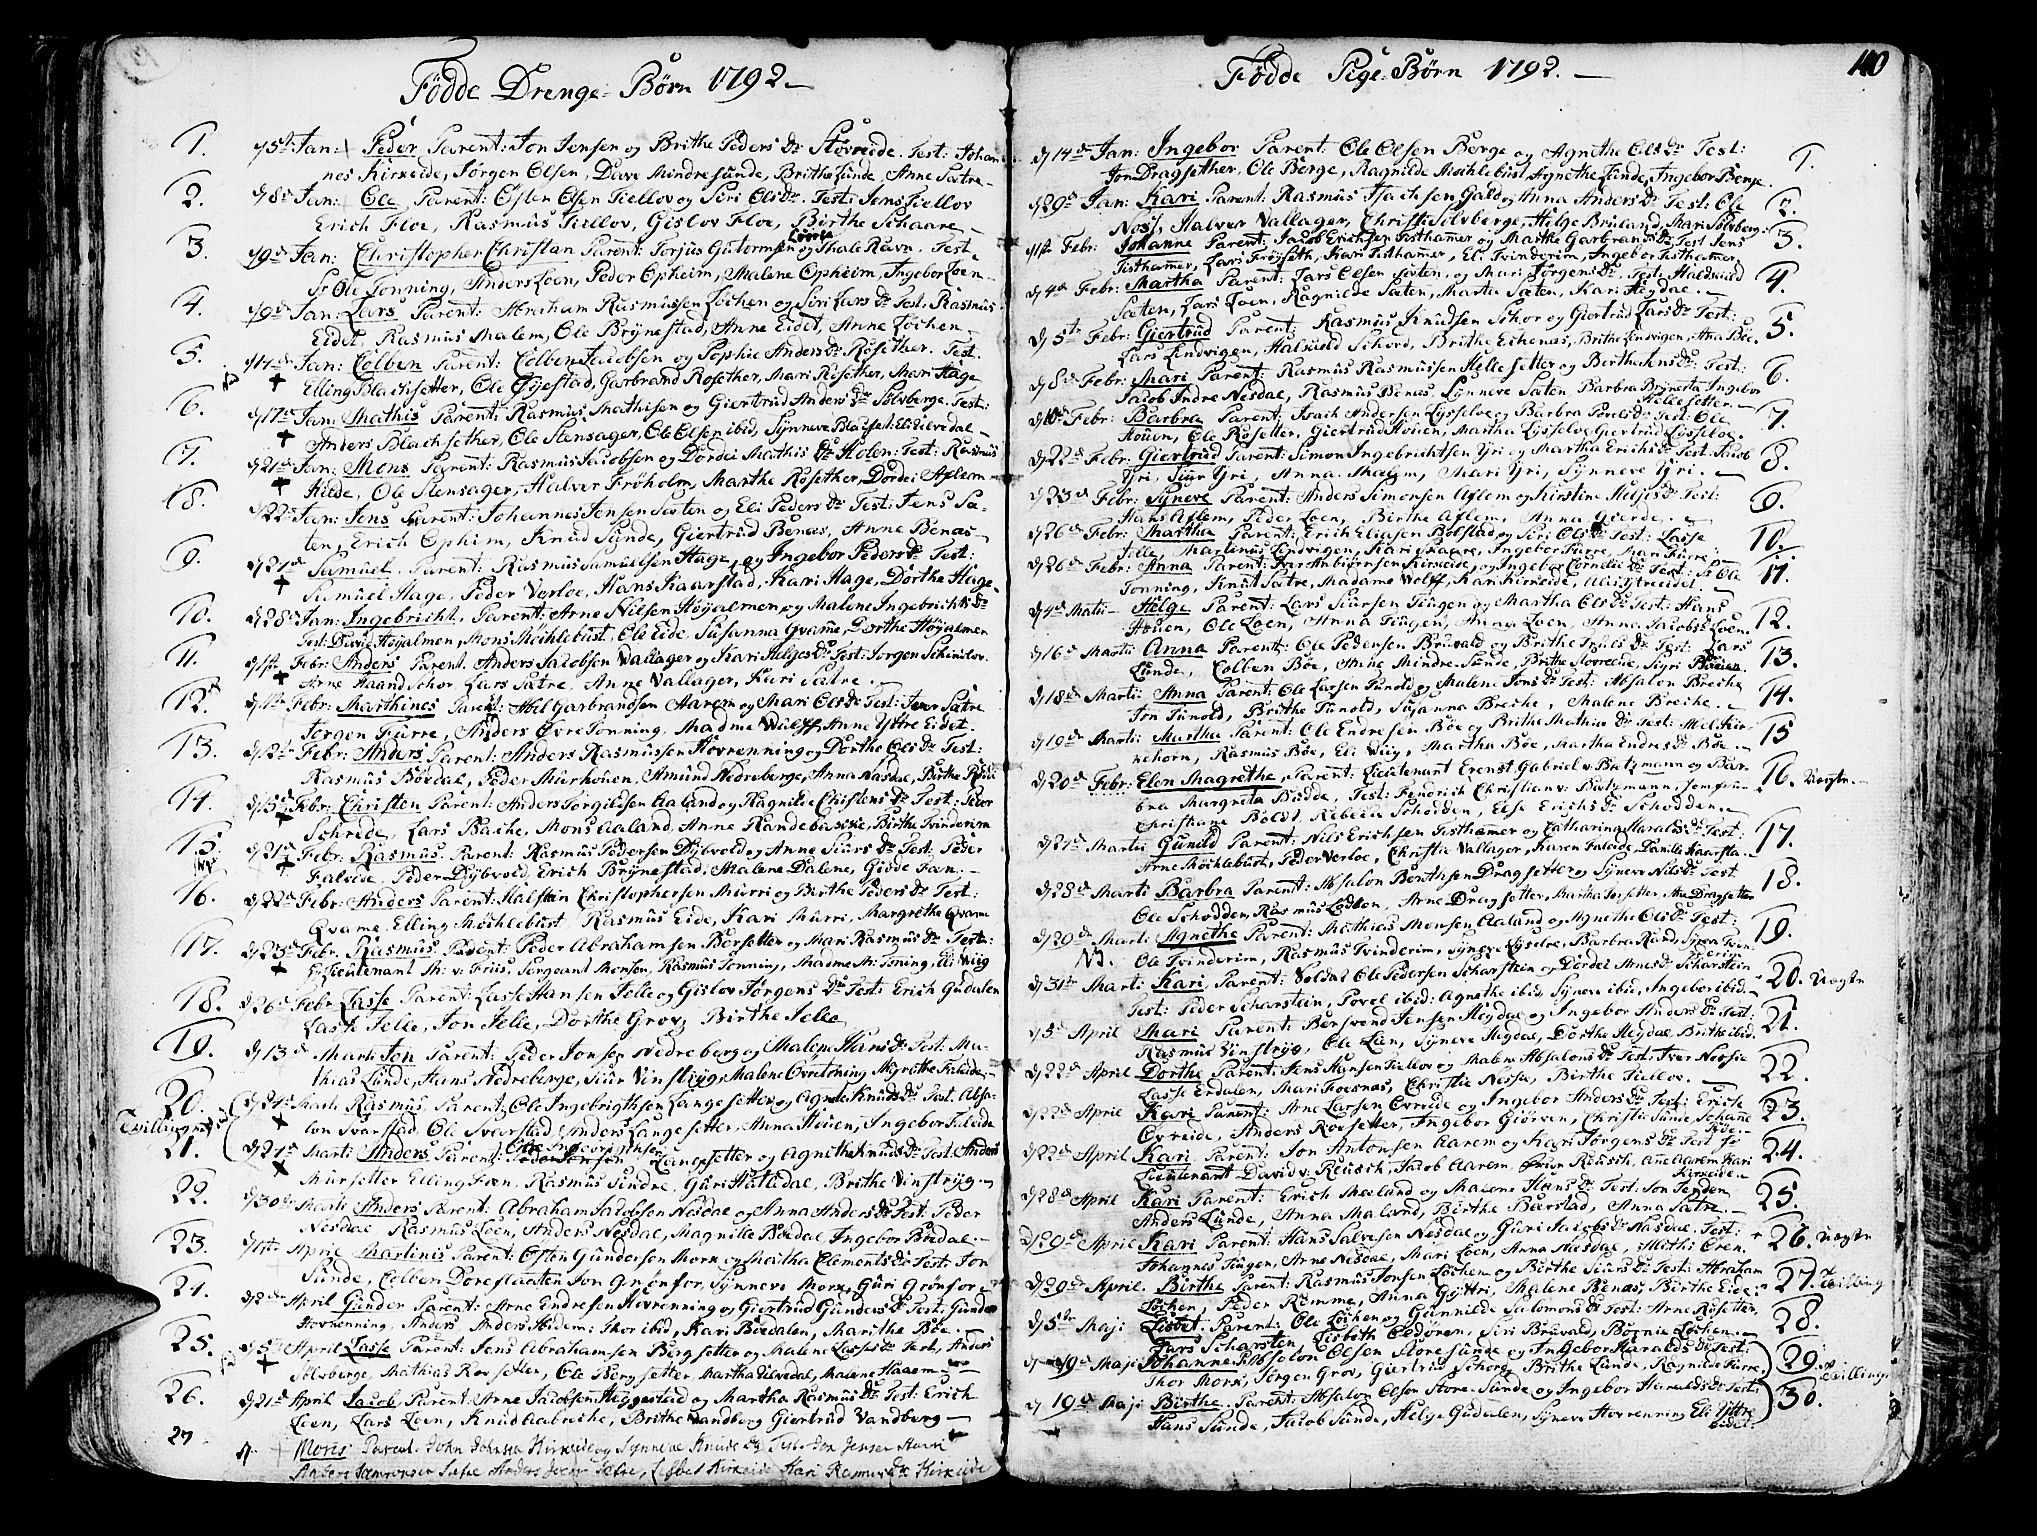 Födde Drenge-Børn 1792.
1. d 5te Jan: Peder Parent: Jon Jensen og Brithe Peders Dr Støvreide. Test: Johan-
nes Kirkeide, Jørgen Olsen, Mindresunde, Brithe Sunde, Anne Sætre
2. d 8de Jan: Ole, Parent: Osten Olsen Tiellov og Siri Ols Dr. Test: Jens Tiellov
Erich Floe, Rasmus Tiellov, Gislov Floe, Birthe Schaare
3. d 9de Jan: Christopher Christian Parent: Torjus Gutormsen og Thale Ravn. Test:
Sr Ole Tonning, Anders Loen, Peder Opheim, Malene Opheim, Ingebor Loen
4. d 9de Jan: Lars Parent: Abraham Rasmussen Løchen og Siri Lars Dr Test: Rasmus
Eidet, Rasmus Malem, Ole Brynestad, Anne Eidet, Anne Løchen
5. d 14de Jan: Colben Parent: Colben Jacobsen og Sophie Anders Dr Røsether. Test:
Elling Blachsetter, Ole Garbrand Rosether, Mari Rosether, Mari Hage
6. d 17de Jan: Mathis Parent: Rasmus Mathisen og Giertrud Anders Dr Solvberge. Test:
Anders Blachsether, Ole Stensager, Ole Olsen ibid, Synneve
7. d 21de Jan: Mons Parent: Rasmus Jacobsen og Dordei Mathis Dr Holen: Test: Rasmus
Hilde, Ole Stensager, Halver Frøholm, Marthe Røsether, Dordei Aflem
8. d 22de Jan: Jens Parent: Johannes Jensen Sæten og Eli Peders Dr Test: Jens Sæ-
ten, Erich Ophiem, Knud Sunde, Giertrud Benæs, Anne Benæs
9. d 27de Samuel Parent: Rasmus Samuelsen Hage, og Ingebor Peders Dr Test:
Samuel Hage, Peder Verloe, Hans Kaarstad, Kari Hage, Dorthe Hage
10. d 28de Jan: Ingebricht, Parent: Arne Nilsen Høyalmen og Malene Ingebrichts Dr
Test: David Høyalmen, Mons Møchlebust, Ole Eide, Susanna Qvame, Dorthe Høyalmen
11. d 1ste Febr: Anders Parent: Anders Jacobsen Vallager og Kari Helges Dr Test: Jørgen
Arne Haandschor, Lars Sætre, Anne Vallager, Kari Sætre
12. Febr: Marthines Parent: Abel Garbrandsen Aarem og Mari Ols Dr Test: Iver Sætre
Jørgen Furre, Anders Øvre Tonning, Madme Wulff, Anne Ystre Eidet
13. Febr: Anders Parent: Anders Rasmussen Hovrenning og Dorthe Ols Dr Test:
Rasmus Bødal, Peder Murhouen, Amund Nedreberge, Anna Nasdal, Birthe
14. Febr: Christen Parent: Anders Torgildsen Aaland og Ragnilde Christens Dr Test: Peder
Schreide, Lars Bache, Mons Aaland, Anne Randebachsie, Birthe Tvinderim
15. d 21de Febr. Rasmus Parent: Rasmus Pedersen Dybvold og Anne Siurs Dr Test: Peder
Faleide, Peder Dybvold, Erich Brynestad, Malene Dalene, Giøde
16. d 22de Febr: Anders Parent: Halsten Christophersen Murri og Birthe Peders Dr Test:
Qvame, Elling Møchlebust, Rasmus Eide, Kari Murri, Margrethe Qvame
17. d 23de Febr. Rasmus Parent: Peder Abrahamsen Bersetter og Mari Rasmus Dr Test:
Lieutenant Th: v: Friis, Sergeant Monsen, Rasmus Tonning, Madme Th: Toning, Eli Viig
18. d 26de Febr Lasse Parent: Lasse Hansen Felle og Gislov Jørgens Dr Test: Erich Gudalen
Lasse Felle, Jon Felle, Dorthe Grov, Birthe Felle
19. d 13de Marti Jon Parent: Peder Jonsen Nedreberg og Malene Hans Dr Test: Ma-
thias Lunde, Hans Nedreberge, Siur Vinsttyg, Malene Øvretoning Mgrethe Faleide
20. d 27de Marti Rasmus Parent Ole Ingebrigtsen Langesetter og Agnete Knuds Dr Test: Absa-
Tvillinger
lon Svarstad, Ole Svarstad, Anders Langesetter, Anna Houen, Ingebor Faleide
21. d 27de Marti Anders Parent: Ole Ingebrigtsen Langesetter og Agnethe Knuds Dr Test: Anders
Mursetter Elling Fæn, Rasmus Sindre, Guri Hatledal, Brithe Vinstryg
22. d 30de Marti Anders Parent: Abraham Jacobsen Nesdal og Anna Anders Dr Test: Peder
Nesdal Rasmus Loen, Anders Nesdal, Magnilla Bødal Ingebor Bødal.
23. d 1ste April Martinus Parent: Osten Gundersen Mork og Martha Clements Dr Test: Jon
Sunde, Colben Doreflaaten Jon Grønfor, Synneve Mork, Guri Grønfor
24. April Gunder Parent: Arne Endresen Hovrenning og Giertrud Gunders Dr Test: Gunder
Hovrenning, Anders Anders ibidem: Thor ibid, Kari Bødalen, Marithe Bøe
25. d 5te April Lasse Parent: Jens Abrahamsen Bergsetter og Malene Lasses Dr Test: Anders
Solvberge, Mathias Rorsetter, Ole Bergsetter Martha Tilvedal, Malene Haaem
26. d 21de April Jacob Parent: Arne Jacobsen Heggestad og Martha Rasmus Dr Test: Erich
Loen, Lars Loen, Knud Aabreche, Brithe Vandberg Giertrud Vandberg
27 Mons Parent: John Johnsen Kirkeide og Synneve Knuds Dr Test: Jon Jensen
Anders Sætre, Lisbet Kirkeide Kari Rasmus Dr Kirkeide
Födde Pige-Børn 1792.
110
d 14de Jan: Ingebor Parent Ole Olsen Berge og Agnethe Ols Dr Test: 1.
Jon Dragsether, Ole Berge, Ragnilde Møchlebust, Agnethe Lunde, Ingebor Berge.
d 29de Jan: Kari Parent: Rasmus Isachsen Gald og Anna Anders Dr Test: Ole 2.
Nos, Halver Vallager, Christi Solvberge, Helge Bruland, Mari Solvberg
d 1ste Febr: Johanne Parent: Jacob Erichsen Tisthammer og Marthe Garbrands Dr Test Jens 3.
Tisthammer, Lars Frøyseth, Kari Tisthammer, Eli Tvinderim, Ingebor Tisthammer
d 4de Febr: Martha Parent: Lars Olsen Sæten, og Mari Jørgens Dr Test: Haldvard 4.
Sæten, Lars Loen, Ragnilde Sæten, Marta Sæten, Kari Hegdal.
d 5te Febr: Giertrud Parent: Rasmus Knudsen Schor og Giertrud Lars Dr Test: 5.
Lars Lindvigen, Halvord Schord, Brithe Eichenæs, Brithe Lindvigen, Ana Bøe.
d 8de Febr: Mari Parent: Rasmus Rasmussen Hellesetter og Berthe Jens Dr Test: 6.
Jacob Indre Nesdal, Rasmus Benæs, Synneve Sæten, Barbra Brynesta Ingebor
Hellesetter
d 18de Febr: Barbra Parent: Isach Andersen Lysseloe og Barbra Pouls Dr Test: Ole 7.
Houen, Ole Rosetter, Giertrud Houen, Martha Lysseloe Giertrud Lysseloe.
d 22de Febr: Giertrud Parent: Simon Ingebrichtsen Yri og Martha Erichs Dr Test: Jacob 8.
Yri, Siur Yri, Anna Malem, Mari Yri, Synneve Yri.
d 23de Febr: Syneve Parent: Anders Simonsen Aflem og Kirstine Helges Dr Test: 9.
Hans Aflem, Peder Loen, Birthe Aflem, Anna Gierde
d 26de Febr: Marthe Parent: Erich Eliasen Bolstad og Siri Ols Dr Test: Lasse 10.
Felle, Martinus Lindvigen, Kari Skaare, Ingebor Furre, Mari Furre
d 26de Febr: Anna Parent: Kirkeide, og Ingebor Cornelii Dr Test: Sr Ole 11.
Tonning, Knut Sætre, Madame Wolff, Kari Kirkeide
d 4de Marti Helge Parent: Lars Siursen Tiugen og Martha Ols Dr Test: Hans 12.
Houen, Ole Loen, Anna Tiugen, Anna Loen, Anna Jacobs Dr Loen
d 16de Marti Anna Parent: Ole Pedersen Bruvald og Brithe Dr Test: Lars 13.
Lunde, Colben Bøe, Anne Mindre-Sunde, Brithe Støvreide, Siri
d 18de Marti: Anna Parent: Ole Larsen Tunold og Malene Jons Dr Test: Absalon Breche 14.
Jon Tunold, Brithe Tunold, Susanna Breche, Malene Breche
d 19de Marti: Marthe Parent: Ole Endresen Bøe og Brithe Mathias Dr Test: Melchior 15
nehorn, Rasmus Bøe, Eli Viig, Martha Bøe, Martha Endres Dr Bøe
d 20de Febr: Elen Magrethe, Parent: Lieutenant Ernst Gabriel v: Butzmann og Bar- 16. Uægte
bra Margreta Budde, Test: Fendrich Christian v: Butzmann, Jomfru
Christiane Boldt, Rebeca Schodden, Else Erichs Dr Schodden
d 27de Marti Gunild Parent: Nils Erichsen Tisthamer og Catharina Haralds Dr Test: 17.
Arne Møchlebust, Peder Verloe, Christie Vallager, Karen Faleide, Pernilla Kaarsta
d 28de Marti Barbra Parent: Absalon Berthesen Dragsetter og Synneve Nils Dr Test 18.
Ole Schodden, Rasmus Lødøen, Arne Dragsetter, Martha Forsetter, Ana Dragsetter
d 29de Marti Agnethe Parent: Mathias Monsen Aaland og Agnethe Ols Dr Test: 19.
N3. Ole Tvinderim, Rasmus Tvinderim, Syneve Lyseloe, Barbra Rand, Syneva Tvin-
derim
d 31te Marti Kari, Parent: Soldat Ole Pedersen Scharstein og Dordei Arnes Dr Scharstein 20. Uægte
Test: Peder Scharstein, Povel ibid: Agnethe ibid, Syneve ibid, Ingebor ibid.
d 5te April Mari Parent: Bersvend Jensen Hegdal og Ingebor Anders Dr Test: 21.
Rasmus Vinstryg, Ole Loen, Syneve Hegdal, Dorthe Hegdal Brithe ibid.
d 22de April Dorthe Parent: Jens Hansen Tiellov og Malena Absalons Dr Test: Iver Nessie 22.
Lasse Erdalen, Mari Hoesnæs, Christie Nessie, Birthe Tielloe.
d 22de April Kari Parent: Arne Larsen Ovreide og Ingebor Anders Dr Test: Erich 23.
Ovreide, Anders Rorsetter, Ingebor Giörven, Christie Sunde Johanne
d 22de April Kari Parent: Jon Antonsen Aarem og Kari Jørgens Dr Test Sr 24.
Lieutenant David v: Reusch, Jacob Aarem, Frue Reusch, Ane Aarem Kari
Kirkeide
d 28de April Kari Parent: Erich Mæland og Malene Hans Dr Test: Jon Tenden 25.
Anders Lunde, Anna Mæland, Birthe Barstad, Anna Sætre.
d 29de April Kari Parent: Hans Salvesen Nesdal og Guri Jacobs Dr Nasdal: Test: 26. Uægte
Johannes Tiugen, Arne Nesdal, Mari Loen, Anna Næsdal, Mithi Oren.
d 29de April. Birthe Parent: Rasmus Jonsen Løchen og Birthe Siurs Dr Test: Abraham 27. Tvilling
Løchen, Peder Rømme, Anna Gyttri, Malene Benæs, Birthe Eide
d 5te Maji Lisbet Parent: Ole Løchen og Gunnilde Salomons Dr Test: Arne Røsetter, 28.
Lars Scharsten, Lisbeth Oldøren, Siri Bruvald, Børnie Løchen
d 19de Maji Johanne Absalon Olsen Storesunde og Ingebor Haralds Dr Test: 29.
Thor Mork, Jørgen Grov, Giertrud Schorg, Brithe Lunde, Ragnilde Furre Tvilling
d 19de Maji Birthe Parent: Absalon Olsen Store-Sunde og Ingebor Haralds Dr Test: 30.
Hans Sunde, Jacob Sunde, Helge Gudalen, Syneve Hovrenning Eli Yttre
Eidet.